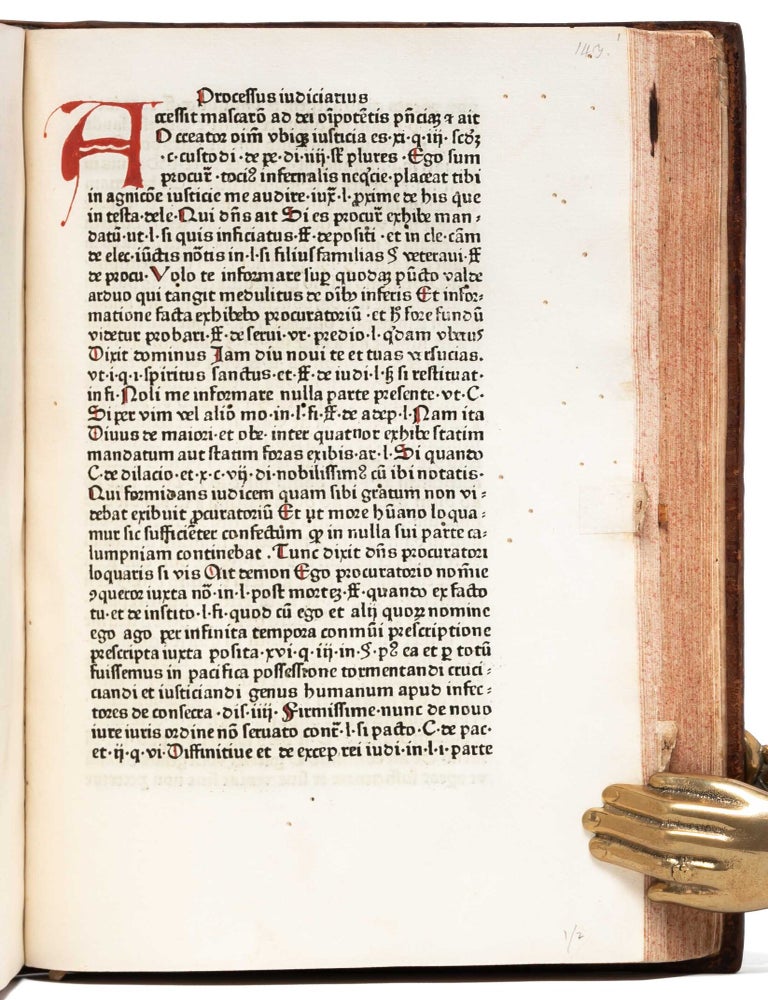 143.
Processus iudiciarius
Accessit mascarō ad dei oīpotētis pn̄ciaꝫ ⁊ ait
O creator oim̄ vbiqꝫ iusticia es·xi·q·iij·scdꝫ
·c·custodi·de pe·di·iiij·sꝉ plures·Ego sum
procur̄·toci⁹ infernalis neq̄cie·placeat tibi
in agnicōe iusticie me audire·iux̄·l·ꝓxime de his que
in testa·dele·Qui dn̄s ait Si es procur̄ exhibe man⸗
datū·ut·l·si quis inficiatus·ff·depositi·et in cle·cām
de elec·iūctis nōtis in·l·si filiusfamilias § veteraui·ff
de procu·Volo te informare suꝑ quodaꝫ pūcto valde
arduo qui tangit medulitus de oib⁹ inferis Et infor⸗
matione facta exhibebo procuratoriū·et h̄ fore fundū
videtur probari·ff·de serui·vr·predio·l·q̄dam
Dixit dominus Iam diu noui te et tuas versucias.
vt·i·q·i·spiritus sanctus·et·ff·de iudi·l·ꝫ si restituat·
in fi·Noli me informare nulla parte presente·vt·C·
Si per vim vel aliō mo·in·l·fi·ff·de adep·l·Nam ita
Diuus de maiori·et obe·inter quatuor exhibe statim
mandatum aut statim foras exibis·ar·l·Si quando
C·de dilacio·et·x·c·vij·di·nobilissim⁹ cū ibi notatis·
Qui formidans iudicem quam sibi grātum non vi⸗
debat exibuit ꝓcuratoriū Et ut more hūano loqua⸗
mur sic sufficiēter confectūm ꝙ in nulla sui pārte ca⸗
lumpniam continebat.Tunc dixit dn̄s procuratori
loquaris si vis Ait demon Ego procuratorio noīnie
ꝯqueror iuxta nō·in·l·post morteꝫ·ff·quando ex facto
tu·et de instito·l·fi·quod cū ego et alij quoꝝ nomine
ego ago per infinita tempora conmūi prescriptione
prescripta iuxta posita·xvi·q·iij·in·§·p⁹ ea et ꝑ totū
fuissemus in pacifica possessione tormentandi cruci⸗
ciandi et iusticiandi genus humanum apud infec⸗
tores de consecra·dis·iiij·Firmissime·nunc de nouo
iure iuris ordine nō seruato cont̄·l·si pacto·C·de pac·
et·ij·q·vi·Diffinitiue et de excep·rei iudi·in·l·i·parte
1/2